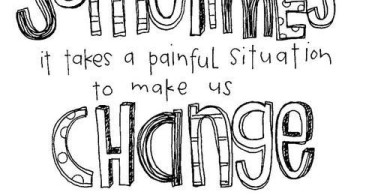 sometimes
it takes a painful situation
to make us
change